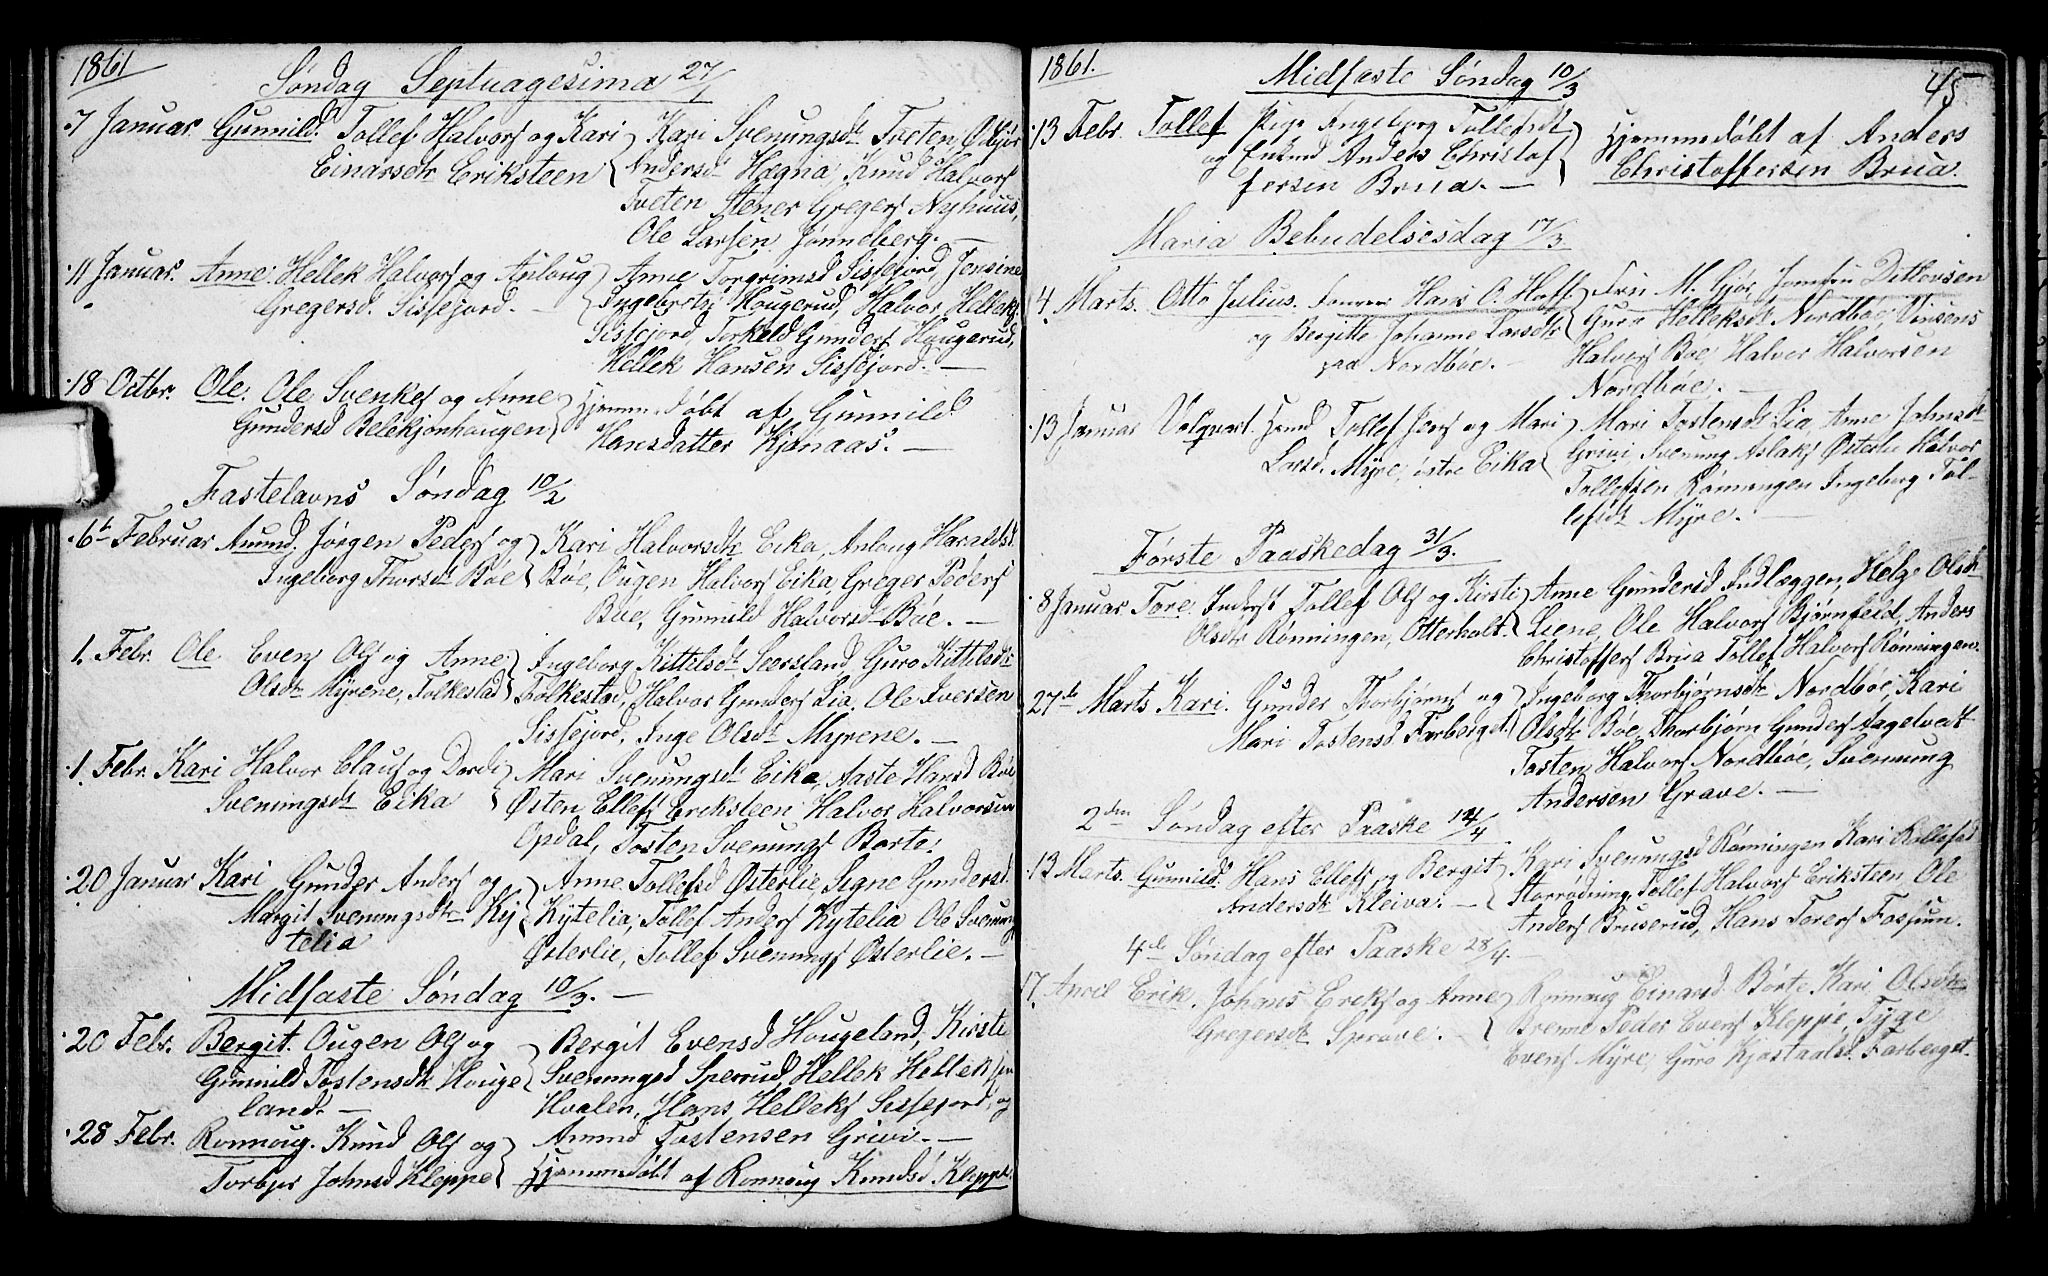 1861
Søndag Septuagesima 27/1
7 Januar. Gunnild. Tollef Halvors og Kari
Einarsdtr Eriksteen
Kari Svenungsdtr Tveten,
Andersd Hagna, Knud Halvors
Tveten Stener Gregers Nyhuus,
Ole Larsen Jønneberg. —
11 Januar. Anne. Hellek Halvors og Anlaug
Gregersd. Sissejord. —
Anne Torgrimsd Sissejord, Jensine
Ingebrets Hougerud, Halvor Helleks
Sissejord, Torkeld Gunders Hougerud,
Hellek Hansen Sissejord. —
18 Octbr. Ole. Ole Svenkes og Anne
Gundersd Belekjonhaugen
Hjemmedøbt af Gunnild
Hansdatter Kjønaas. —
Fastelavns Søndag 10/2
6te Februar Amund. Jørgen Peders og
Ingeborg Thorsdt Bøe
Kari Halvorsdtr Eika, Anlaug Haraldsd.
Bøe, Ougen Halvors Eika, Greger Peders
Bøe, Gunnild Halvorsd Bøe. —
1. Febr. Ole Even Ols og Anne
Olsdtr Myrene, Folkestad
Ingeborg Kittelsdt Seersland, Guro Kittelsdtr
Folkestad, Halvor Gunders Lia, Ole Iversen
Sissejord, Inge Olsdt Myrene. —
1. Febr. Kari Halvor Claus og Dordi
Svenungsdt Eika
Mari Svenungsdt Eika, Aaste Hansd Bøe
Østen Ellefs Eriksteen Halvor Halvorsen
Opdal, Tosten Svenungs Borte.
20 Januar Kari Gunder Anders og
Margit Svenungsdtr Kij
telia
Anne Tollefsd Østerlie Signe Gundersd.
Kytelia, Tollef Anders Kytelia Ole Svenungs
Østerlie, Tollef Svenungs Østerlie. —
Midfaste Søndag 10/3. —
20 Febr. Bergit. Ougen Ols og
Gunnild Tostensdtr Houge
land. —
Bergit Evensd Hougeland, Kirsti
Svenungsd Sperrud, Hellek Helleksen
Hvalen, Hans Helleks Sissejord, og
Amund Tostensen Grivi. —
28 Febr. Ronnoug. Knud Ols og
Torbjør Johnsd Kleppe
Hjemmedøbt af Ronnoug Knudsd Kleppe.
1861.
45
Midfaste Søndag 10/3
13 Febr. Tollef Pige Ingeborg Tollefsdt
og Enkmd Anders Christof
fersen Brua. —
Hjemmedøbt af Anders
Christoffersen Brua.
Maria Bebudelsesdag 17/3
4 Marts. Otto Julius. Hans O. Hoff
og Bergitte Johanne Larsdtr
paa Nordbøe. —
Fru M. Gjør, Jomfru Ditlevsen
Guro Helleksdt Nordbøe, Vinsens
Halvors Bøe, Halvor Halvorsen
Nordbøe. —
13 Januar Volqvart. Hmd Tollef Jens og Mari
Larsd. Myre, østre Eika
Mari Tostensdt Lia, Anne Johnsdtr
Grivi, Svenung Aslaks Østerlie Halvor
Tollefsen Rønningen Ingeborg Tol-
lefsdt Myre. —
Første Paaskedag 31/3.
8 Januar. Tore. Inderst Tollef Ols og Kirsti
Olsdtr Rønningen, Otterholt.
Anne Gundersd Indlæggen, Helge Olsdtr
Liene, Ole Halvors Bjørnfeld, Anders
Christoffers Brua Tollef Halvors Rønningen.
27de Marts Kari. Gunder Thorbjørns og
Mari Tostensd Farberget.
Ingeborg Thorbjørnsdtr Nordbøe, Kari
Olsdtr Bøe, Thorbjørn Gunders Aagetvedt
Tosten Halvors Nordbøe, Svenung
Andersen Grave. —
2den Søndag efter Paaske 14/4
13 Marts. Gunnild. Hans Ellefs og Bergit
Andersdtr Kleiva. —
Kari Svenungsd Rønningen Kari
Storrødning, Tollef Halvors Eriksteen, Ole
Anders Bruserud, Hans Torers Fossjun.
4de Søndag efter Paaske 28/4. —
17. April Erik. Johans Eriks og Anne
Gregersdtr Sprøve. —
Ronnoug Einarsd Børte Kari Olsdtr
Brenne Peder Evens Kleppe, Tyge
Evens Myre, Guro Kjøstaalsd. Farberget.